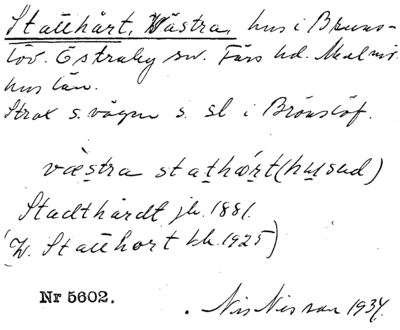 Statthärt, Västra, hus i Bruns-
löv. Östraby sn. Färs hd. Malmö-
hus län.
Strax s. vägen s. sl i Brönslöf.
væstra stathært (hused)
Stadthärdt jb. 1881.
(V. Statthort bk. 1925)
Nr 5602.
Nils Nilsson 1934.